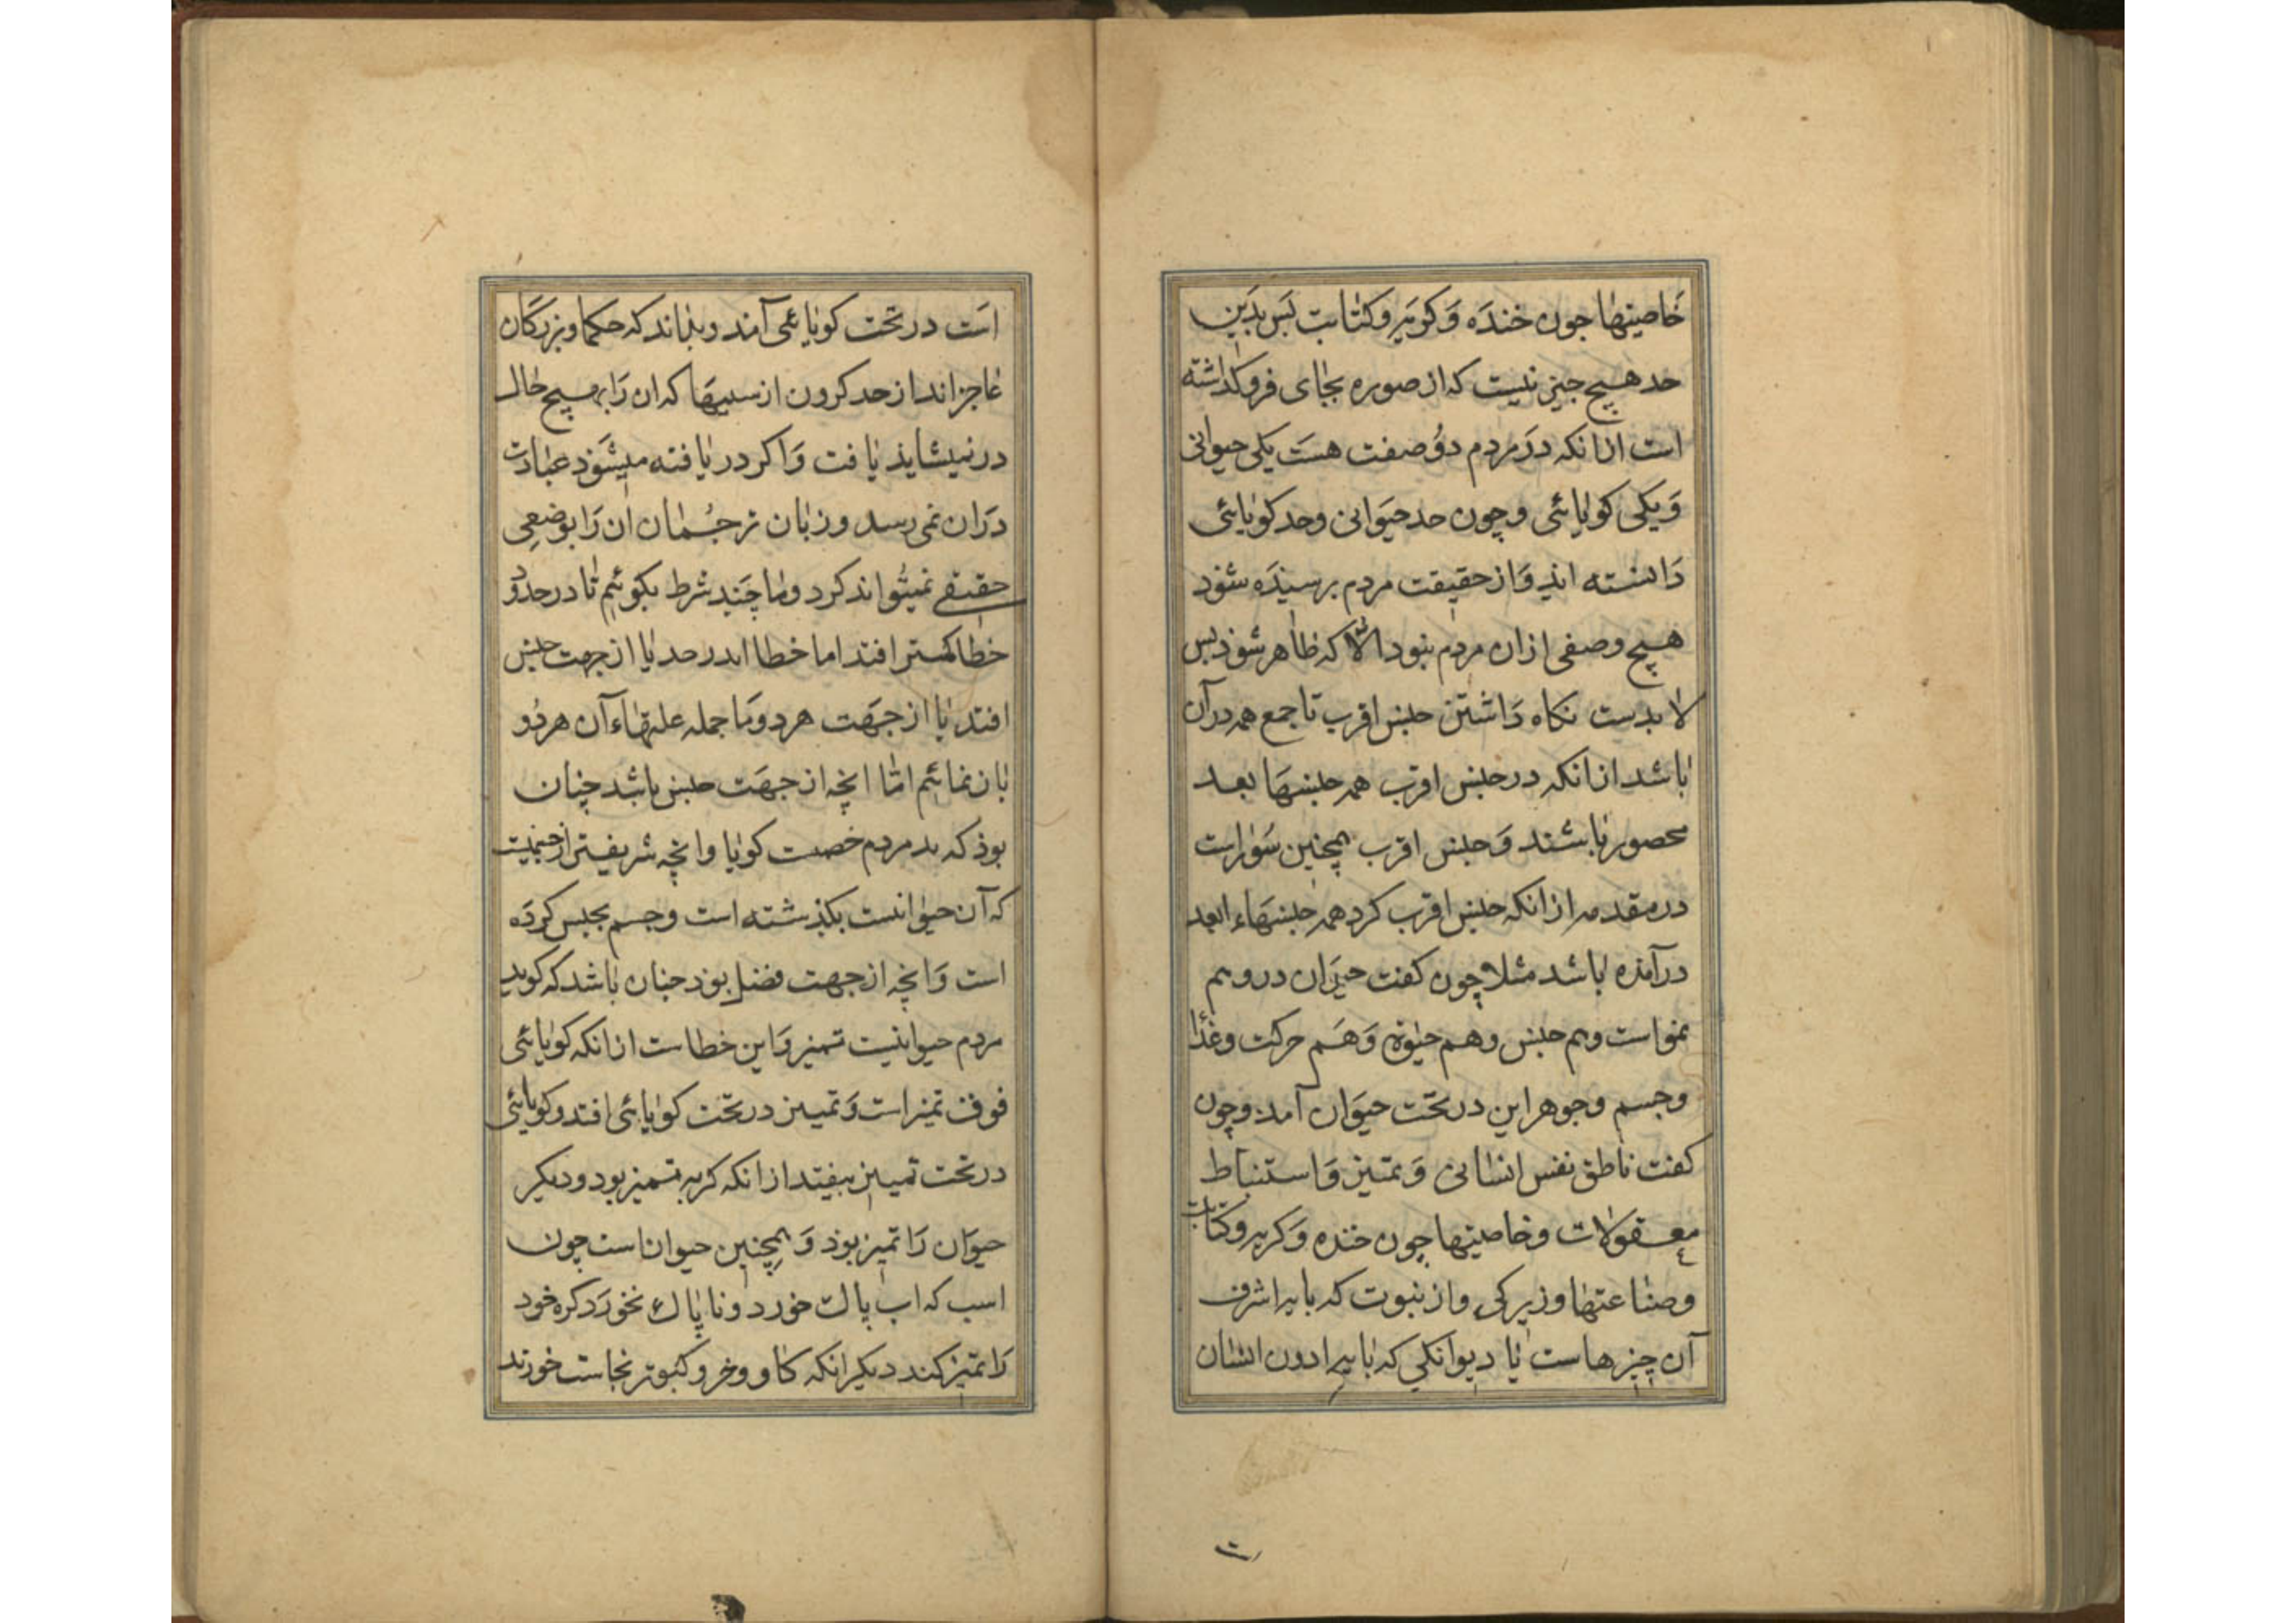 خاصیتها جون خنده و کریه و کتابت بس بدین
حد هیچ جیز نیست که از صوره بجای فروکذاشته
است ازانکه در مردم دو صفت هست یکی حیوانی
و یکی کویائی و چون حد حیوانی و حد کویائی
دانسته اند و از حقیقت مردم برسیده شوذ
هیچ وصفی ازان مردم نبود الا که ظاهر شوذ بس
لابدست نکاه داشتن جنس اقرب تا جمع همه در آن
باشد ازانکه در جنس اقرب همه جنسها بعد
محصور باشند و جنس اقرب همچنین سوراست
در مقدمه ازانکه جنس اقرب کرد همه جنسهاء ابعد
درآمده باشد مثلا چون کفت حیوان درو هم
نمو است و هم جنس و هم حیوة و هم حرکت و غذا
و جسم و جوهر این در تحت حیوان آمد و چون
کفت ناطق نفس انسانی و تمییز و استنباط
معقولات و خاصیتها چون خنده و کریه و کتابت
و صناعتها و زیرکی و از نبوت که بایه اشرف
آن چیزهاست تا دیوانکی که بایه ادون انسان
است در تحت کویائی آمد و بداند که حکما و بزرکان
عاجز اند از حد کردن از سببها که ان را بهیچ حال
در نمیشاید یافت و اکر دریافته میشود عبارت
دران نمی رسد و زبان ترجمان ان را بوضعی
حقیقی نمیتواند کرد و ما چند شرط بکوئیم تا در حدود
خطا کمتر افتد اما خطا اندر حد یا از جهت جنس
افتد یا از جهت هر دو و ما جمله علتهاء آن هر دو
باز نمائیم اما انچه از جهت جنس باشد چنان
بوذ که مردم کویا و انچه شریفتر از جنسیت
که آن حیوانست بکذشته است و جسم بجنس کرده
است و انچه از جهت فضل بوذ جنان باشد که کوید
مردم حیوانیست تمیز و این خطاست ازانکه کویائی
فوق تمیز است و تمییز در تحت کویائی افتد و کویائی
در تحت تمییز نیفتد ازانکه کربه تمیز بود و دیکر
حیوان را تمیز بوذ و همچنین حیواناست چون
اسب که اب پاک خورد و ناپاک نخورد کره خود
را تمیز کند دیکر انکه کاو و خر و کبوتر نجاست خورند